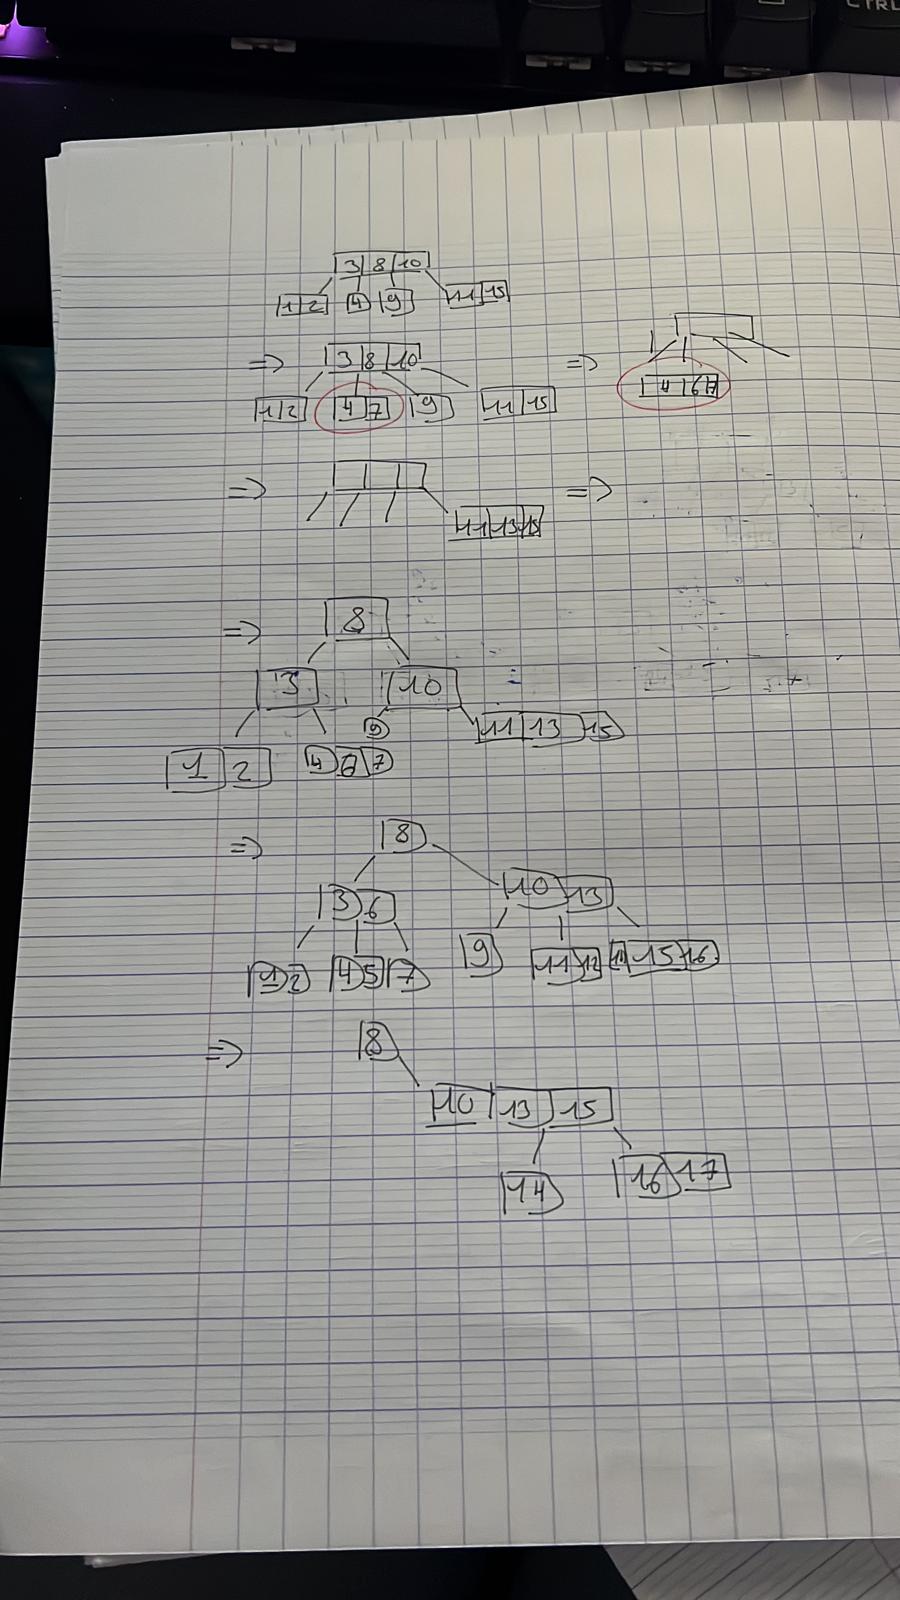 CTRL
3 8 10
1 2 4 9 11 15
⇒ 3 8 10 ⇒
1 2 4 7 9 11 15 4 6 7
⇒ ⇒
11 13 15
⇒ 8
3 10
9 11 13 15
1 2 4 6 7
⇒ 8
3 6 10 13
1 2 4 5 7 9 11 12 14 15 16
⇒ 8
10 13 15
14 16 17